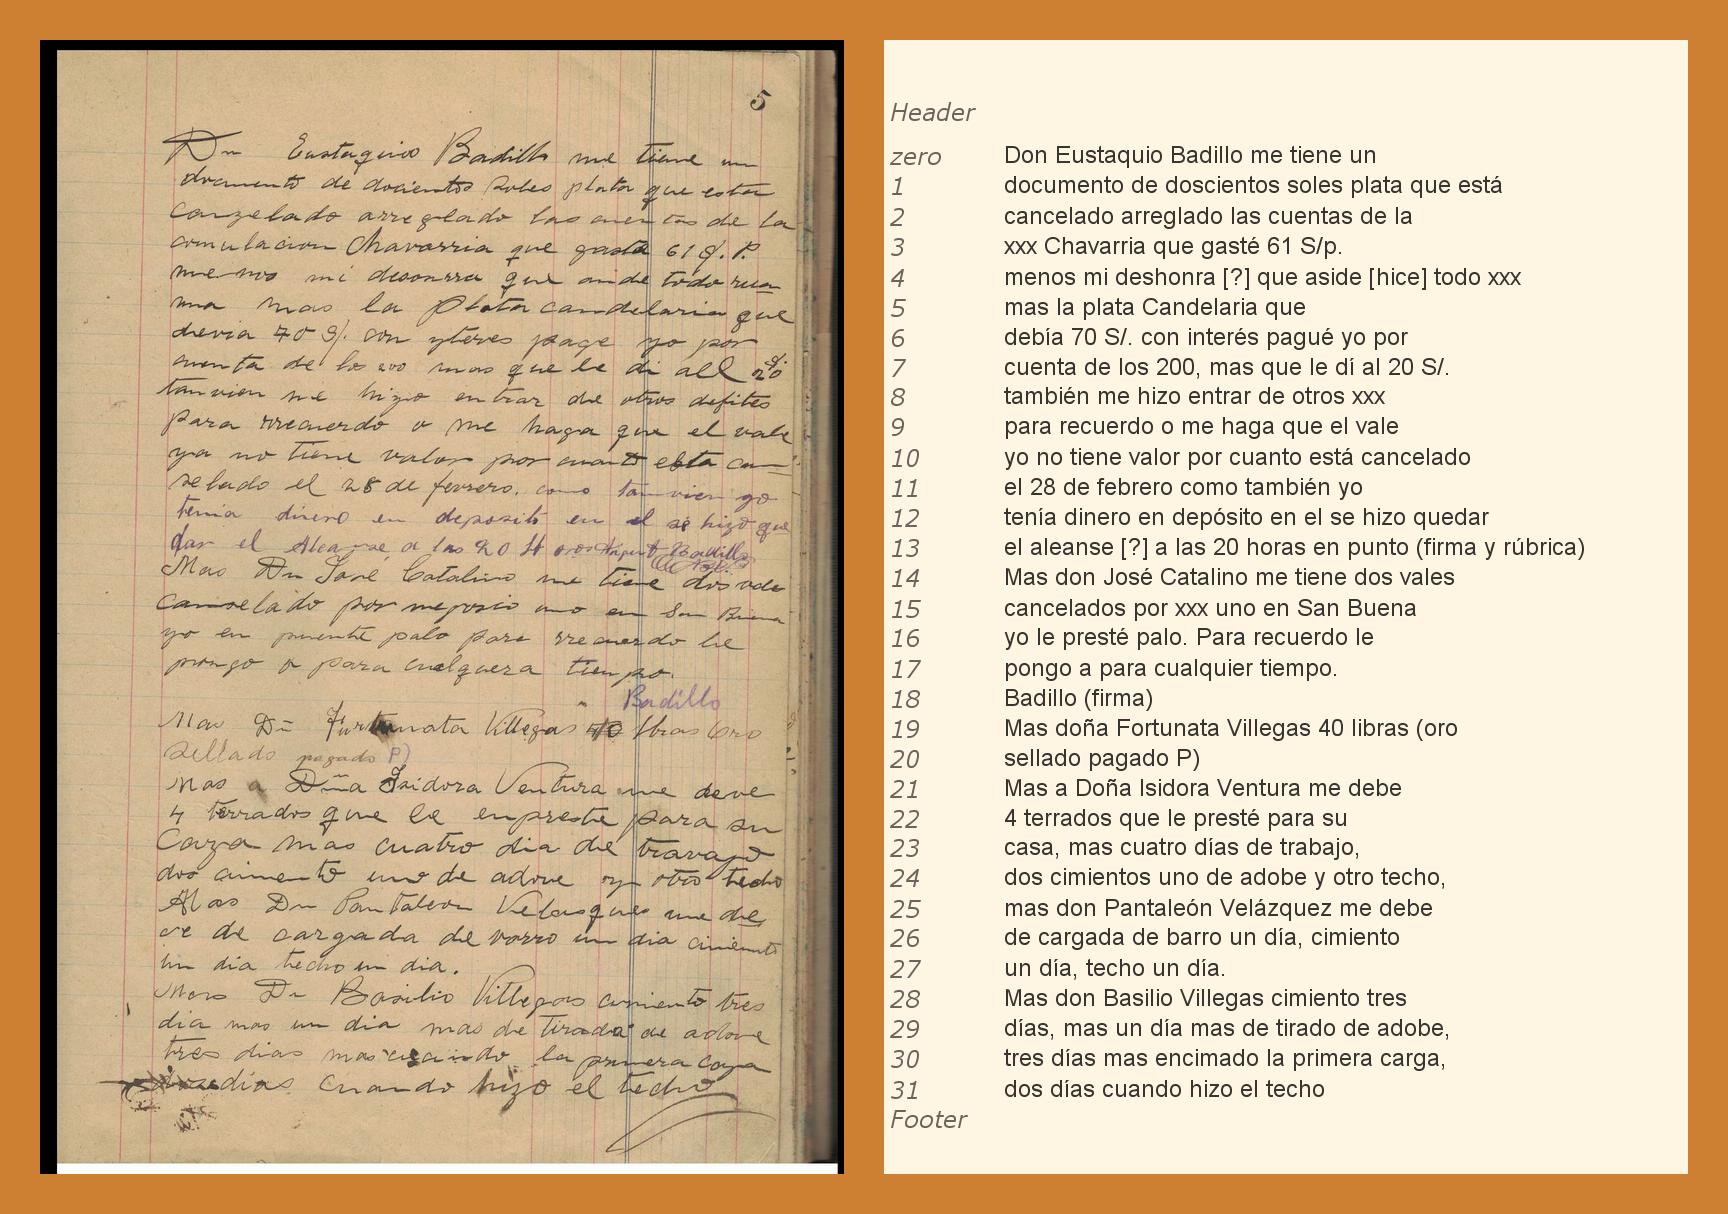 5
Dn Eustaquio Badillo me tiene un
documento de docientos soles plata que esta
canzelado arreglado las cuentas de la
Chavarria que gasté 61 S. P.
menos mi desonrra que todo
mas la Plata candelaria que
devia 70 S/. con yteres page yo por
cuenta de los 200 mas que le di all 20 S/.
tanvien me hizo entrar de otros
para rrecuerdo o me haga que el vale
ya no tiene valor por cuanto esta can
selado el 28 de ferrero. como tanvien yo
tenia dinero en deposito en el se hizo que
dar el a las 20 Badillo
Mas Dn José Catalino me tiene dos vale
canselado por uno en San Buena
yo en puente palo para rrecuerdo le
pongo o para cualquera tiempo.
Badillo
Mas Dña Fortunata Villegas 40 libras Oro
Sellado pagado P)
Mas a Dña Isidora Ventura me deve
4 terrados que le enpreste para su
Caza mas cuatro dia de travajo
dos cimento uno de adove oy otro techo
Mas Dn Pantaleon Velasques me de
ve de cargada de varro un dia cimiento
un dia techo un dia.
Mas Dn Basilio Villegas cimiento tres
dia mas un dia mas de tirada de adove
tres dias mas la primera
dias cuando hizo el techo
Header
zero Don Eustaquio Badillo me tiene un
1 documento de doscientos soles plata que está
2 cancelado arreglado las cuentas de la
3 xxx Chavarria que gasté 61 S/p.
4 menos mi deshonra [?] que aside [hice] todo xxx
5 mas la plata Candelaria que
6 debía 70 S/. con interés pagué yo por
7 cuenta de los 200, mas que le dí al 20 S/.
8 también me hizo entrar de otros xxx
9 para recuerdo o me haga que el vale
10 yo no tiene valor por cuanto está cancelado
11 el 28 de febrero como también yo
12 tenía dinero en depósito en el se hizo quedar
13 el aleanse [?] a las 20 horas en punto (firma y rúbrica)
14 Mas don José Catalino me tiene dos vales
15 cancelados por xxx uno en San Buena
16 yo le presté palo. Para recuerdo le
17 pongo a para cualquier tiempo.
18 Badillo (firma)
19 Mas doña Fortunata Villegas 40 libras (oro
20 sellado pagado P)
21 Mas a Doña Isidora Ventura me debe
22 4 terrados que le presté para su
23 casa, mas cuatro días de trabajo,
24 dos cimientos uno de adobe y otro techo,
25 mas don Pantaleón Velázquez me debe
26 de cargada de barro un día, cimiento
27 un día, techo un día.
28 Mas don Basilio Villegas cimiento tres
29 días, mas un día mas de tirado de adobe,
30 tres días mas encimado la primera carga,
31 dos días cuando hizo el techo
Footer